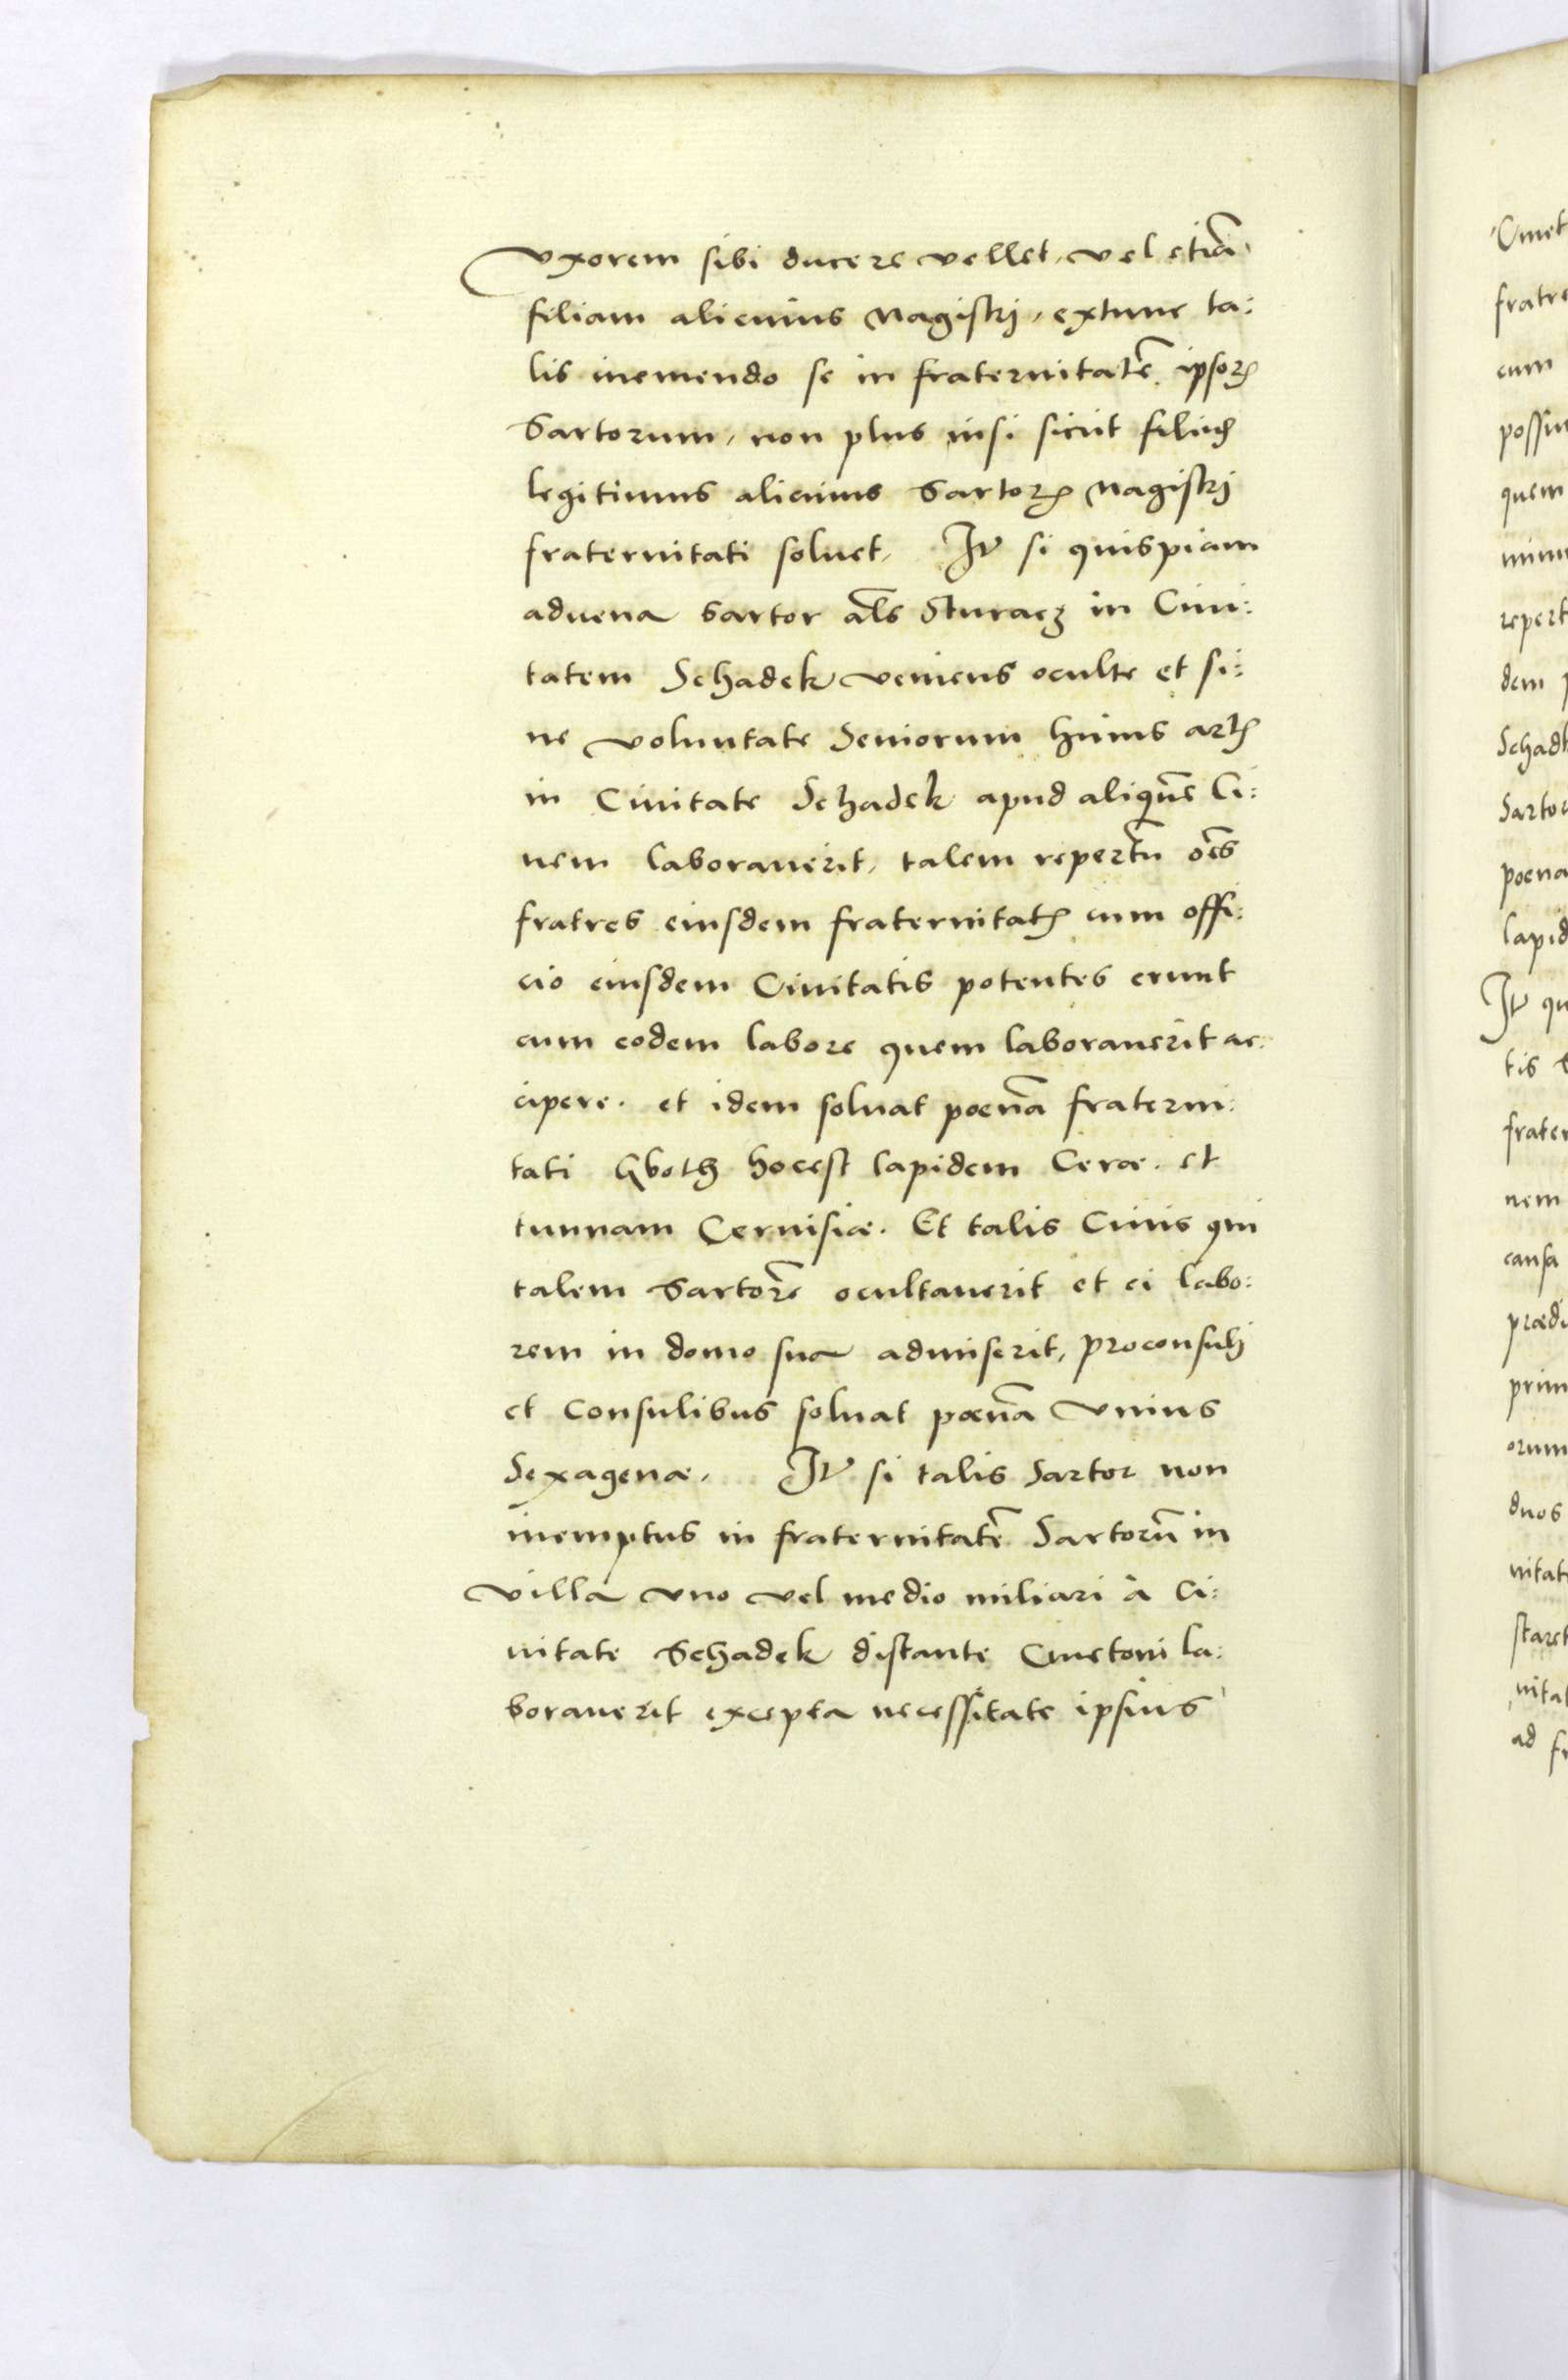 Vxorem sibi ducere vellet, vel etiā
filiam alicuius Magistri, extunc ta:
lis inemendo se in fraternitatē ipsorꝫ
Sartorum, non plus nisi sicut filius
legitimus alicuius Sartorꝫ Magistri
fraternitati soluet. Itꝫ si quispiam
aduena Sartor als Sturacz in Ciui:
tatem Schadek veniens oculte et si:
ne voluntate Seniorum huius artꝭ
in Ciuitate Schadek apud aliquē Ci:
uem laborauerit, talem repertū oēs
fratres eiusdem fraternitatꝭ cum offi:
cio eiusdem Ciuitatis potentes erunt
cum eodem labore quem laborauerit ac:
cipere. et idem soluat poenā fraterni:
tati hocest lapidem Cerae. et
tunnam Ceruisiae. Et talis Ciuis qui
talem Sartorē ocultauerit et ei labo:
rem in domo sua admiserit, proconsuli
et Consulibus soluat poenā Vnius
Sexagenae. Itꝫ si talis Sartor non
inemptus in fraternitatē Sartorū in
Villa vno vel medio miliari à Ci:
uitate Schadek distante Cmetoni la:
borauerit excepta necessitate ipsius
Cmet
fratre
cum
possu
quem
repert
dem
Schad
Sarto
poena
lapid
Itꝫ qu
tis
frater
nem
causa
praedi
prim
orum
duos
uitat
staret
uitat
ad fr